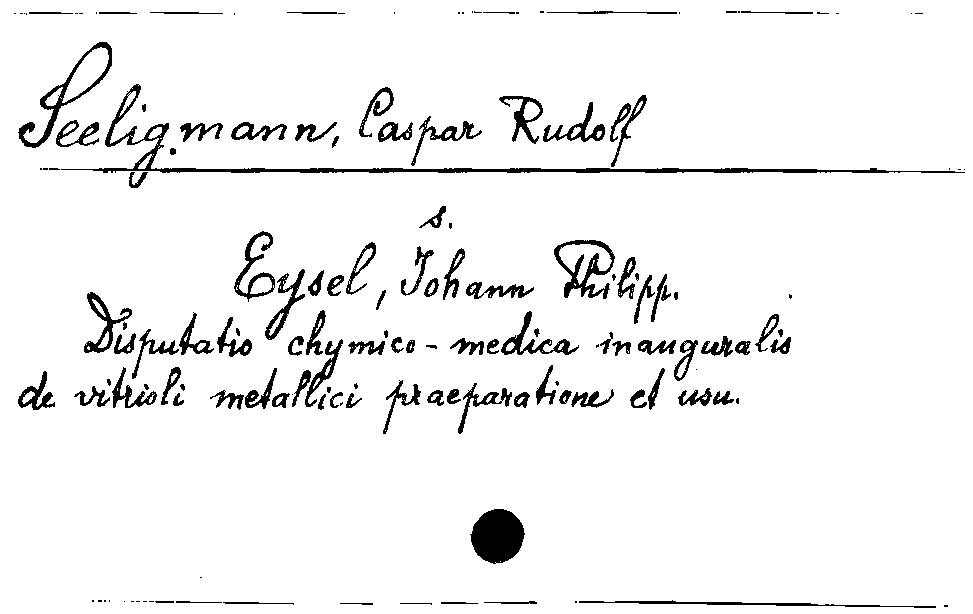 Seeligmann, Caspar Rudolf
s.
Eysel, Johann Philipp.
Disputatio chymico-medica inauguralis
de vitrioli metallici praeparatione et usu.